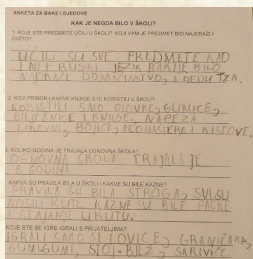 ANKETA ZA BAKE I DJEDOVE
KAK JE NEGDA BILO V ŠKOLI?
1. KOJE STE PREDMETE UČILI U ŠKOLI? KOJI VAM JE PREDMET BIO NAJDRAŽI I
ZAŠTO?
UČILI SU SVE PREDMETE KAO
I MI I RUSKI JEZIK BAKI JE BILO
DOMAĆINSTVO, A DEDU TZK.
2. KOJI PRIBOR I KAKVE KNJIGE STE KORISTILI U ŠKOLI?
KORISTILI SMO OLOVKE, GUMICE,
BILJEŽNICE I KNJIGE,
BOJICE, FLOMASTERE I KISTOVE.
3. KOLIKO GODINA JE TRAJALA OSNOVNA ŠKOLA?
OSNOVNA ŠKOLA TRAJALA JE
8 GODINA
KAKVA SU PRAVILA BILA U ŠKOLI I KAKVE SU BILE KAZNE?
PRAVILA SU BILA STROGA, SVI SU
KAZNE SU BILE
STAJANJE U KUTU.
KOJE STE SE IGRE IGRALI S PRIJATELJIMA?
IGRALI SMO SE LOVICE, GRANIČARA,
GUMIGUMI, SKRIVIČE